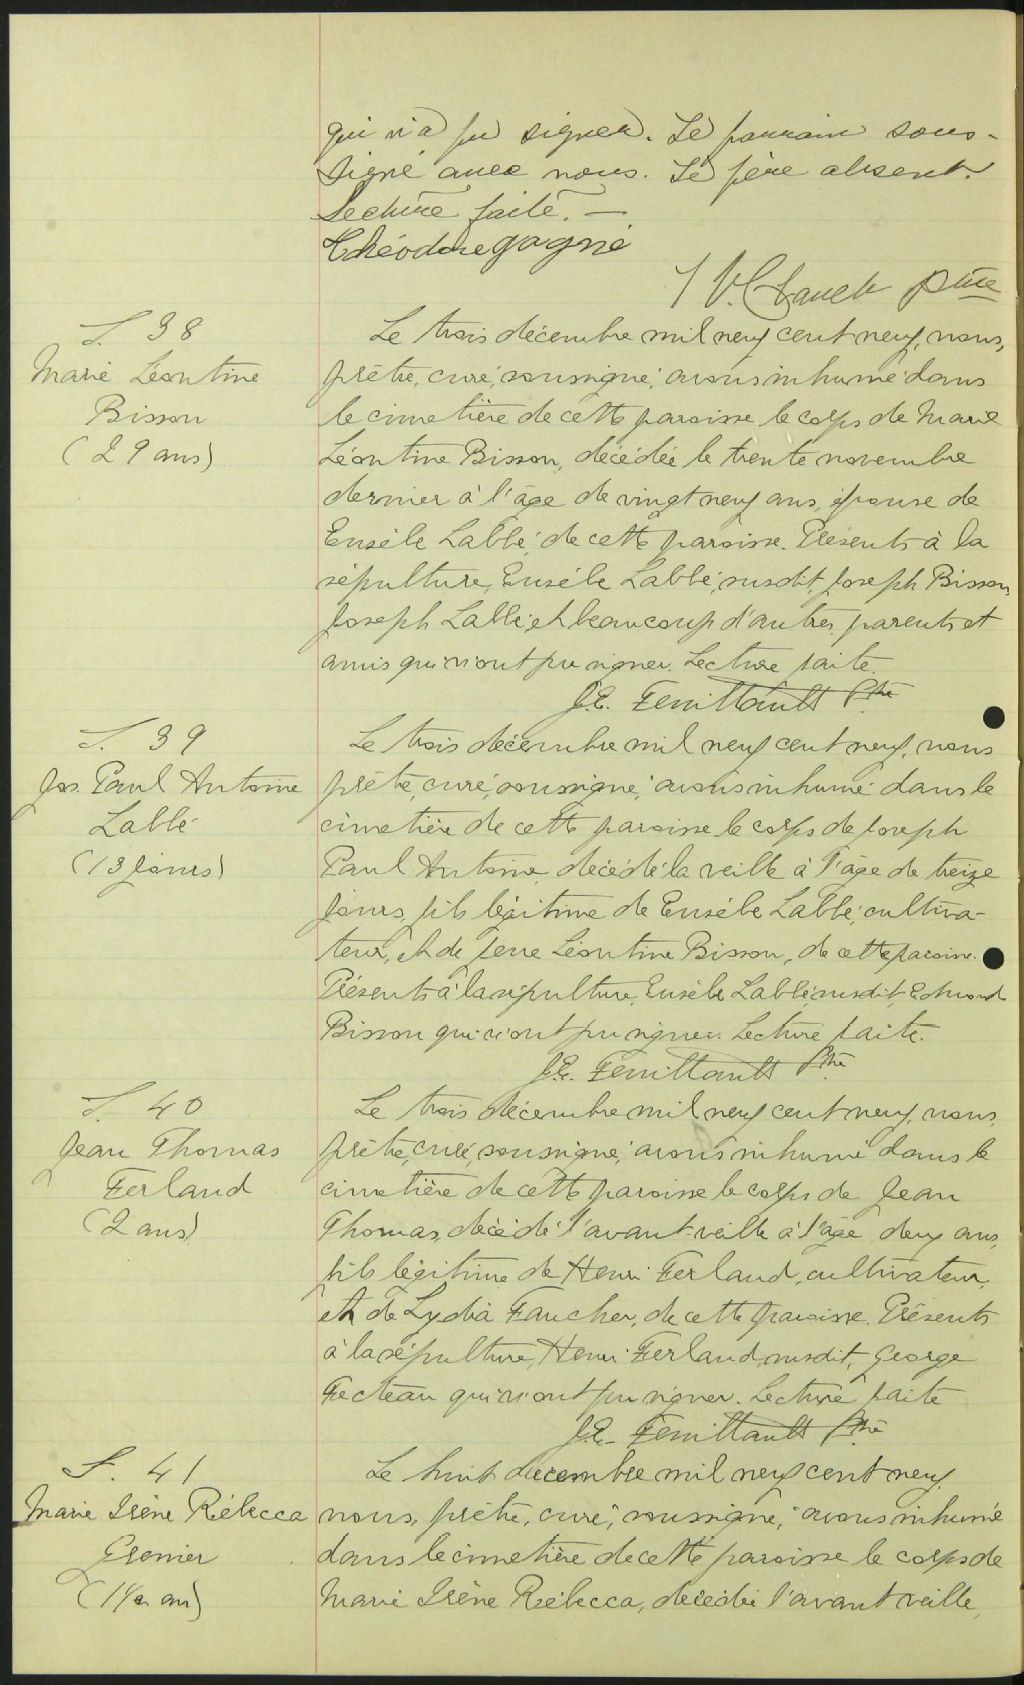 qui n'a pu signer. Le parrain sous-
signé avec nous. Le père absent.
Lecture faite. —
Théodore gagné
Ptre
S. 38
Marie Léontine
Bisson
(29 ans)
Le trois décembre mil neuf cent neuf, nous,
prêtre, curé, soussigné, avons inhumé dans
le cimetière de cette paroisse le corps de Marie
Léontine Bisson, décédée le trente novembre
dernier à l'âge de vingt neuf ans, épouse de
Eusèbe Labbé, de cette paroisse. Présents à la
sépulture, Eusèbe Labbé, susdit, Joseph Bisson,
Joseph Labbé et beaucoup d'autres parents et
amis qui n'ont pu signer. Lecture faite.
J.E. Feuiltault Ptre
S. 39
Jos. Paul Antoine
Labbé
(13 jours)
Le trois décembre mil neuf cent neuf, nous
prêtre, curé, soussigné, avons inhumé dans le
cimetière de cette paroisse le corps de Joseph
Paul Antoine, décédé la veille à l'âge de treize
jours, fils légitime de Eusèbe Labbé, cultiva-
teur, et de feue Léontine Bisson, de cette paroisse.
Présents à la sépulture, Eusèbe Labbé, susdit, Edmond
Bisson qui n'ont pu signer. Lecture faite.
J.E. Feuiltault Ptre
S. 40
Jean Thomas
Ferland
(2 ans)
Le trois décembre mil neuf cent neuf, nous,
prêtre, curé, soussigné, avons inhumé dans le
cimetière de cette paroisse le corps de Jean
Thomas, décédé l'avant-veille à l'âge deux ans,
fils légitime de Henri Ferland, cultivateur,
et de Lydia Faucher, de cette paroisse. Présents
à la sépulture, Henri Ferland, susdit, George
Fecteau qui n'ont pu signer. Lecture faite
J.E. Feuiltault Ptre
S. 41
Marie Irène Rébecca
Grenier
(1 1/2 an)
Le huit décembre mil neuf cent neuf
nous, prêtre, curé, soussigné, avons inhumé
dans le cimetière de cette paroisse le corps de
Marie Irène Rébecca, décédée l'avant veille,